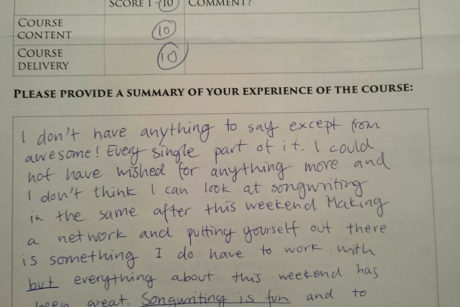 SCORE 1-10 COMMENT?
COURSE CONTENT 10
COURSE DELIVERY 10
PLEASE PROVIDE A SUMMARY OF YOUR EXPERIENCE OF THE COURSE:
I don't have anything to say except from
awesome! Every single part of it. I could
not have wished for anything more and
I don't think I can look at songwriting
in the same after this weekend Making
a network and putting yourself out there
is something I do have to work with
but everything about this weekend has
been great. Songwriting is fun and to